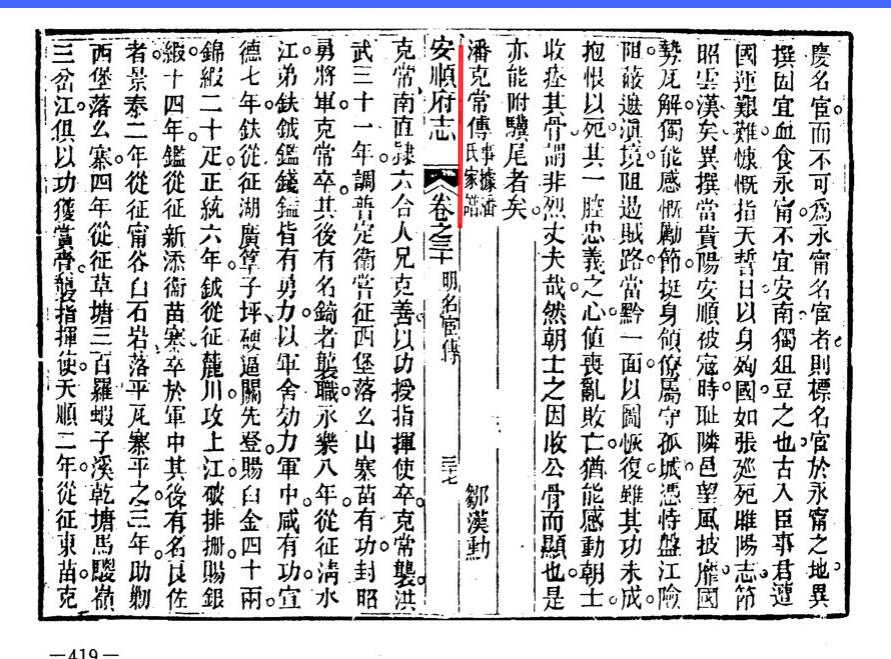 慶名宦而不可爲永甯名宦者則標名宦於永甯之地異
撰固宜血食永甯不宜安南獨俎豆之也古人臣事君遭
國運艱難慷慨指天誓日以身殉國如張廵死睢陽志節
昭雲漢矣異撰當貴陽安順被寇時耻隣邑望風披靡國
勢瓦解獨能感慨勵節挺身領僚屬守孤城憑恃盤江險
阻蔽遮滇境阻遏賊路當黔一面以圖恢復雖其功未成
抱恨以死其一腔忠義之心値喪亂敗亡猶能感動朝士
收瘞其骨謂非烈丈夫哉然朝士之因收公骨而顯也是
亦能附驥尾者矣
潘克常傳 事據潘氏家譜 鄒漢勳
安順府志 卷之三十 明名宦傳 三十七
克常南直隷六合人兄克善以功授指揮使卒克常襲洪
武三十一年調普定衛嘗征西堡落么山寨苗有功封昭
勇將軍克常卒其後有名錡者襲職永樂八年從征清水
江弟鈇鉞鑑錢鎰皆有勇力以軍舍効力軍中咸有功宣
德七年鈇從征湖廣箄子坪硬逼關先登賜白金四十兩
錦緞二十疋正統六年鉞從征麓川攻上江破排栅賜銀
緞十四年鑑從征新添衞苗寨卒於軍中其後有名良佐
者景泰二年從征甯谷白石岩落平瓦寨平之三年助勦
西堡落么寨四年從征草塘三百羅蝦子溪乾塘馬騣嶺
三岔江俱以功獲賞賚襲指揮使天順二年從征東苗克
—419—